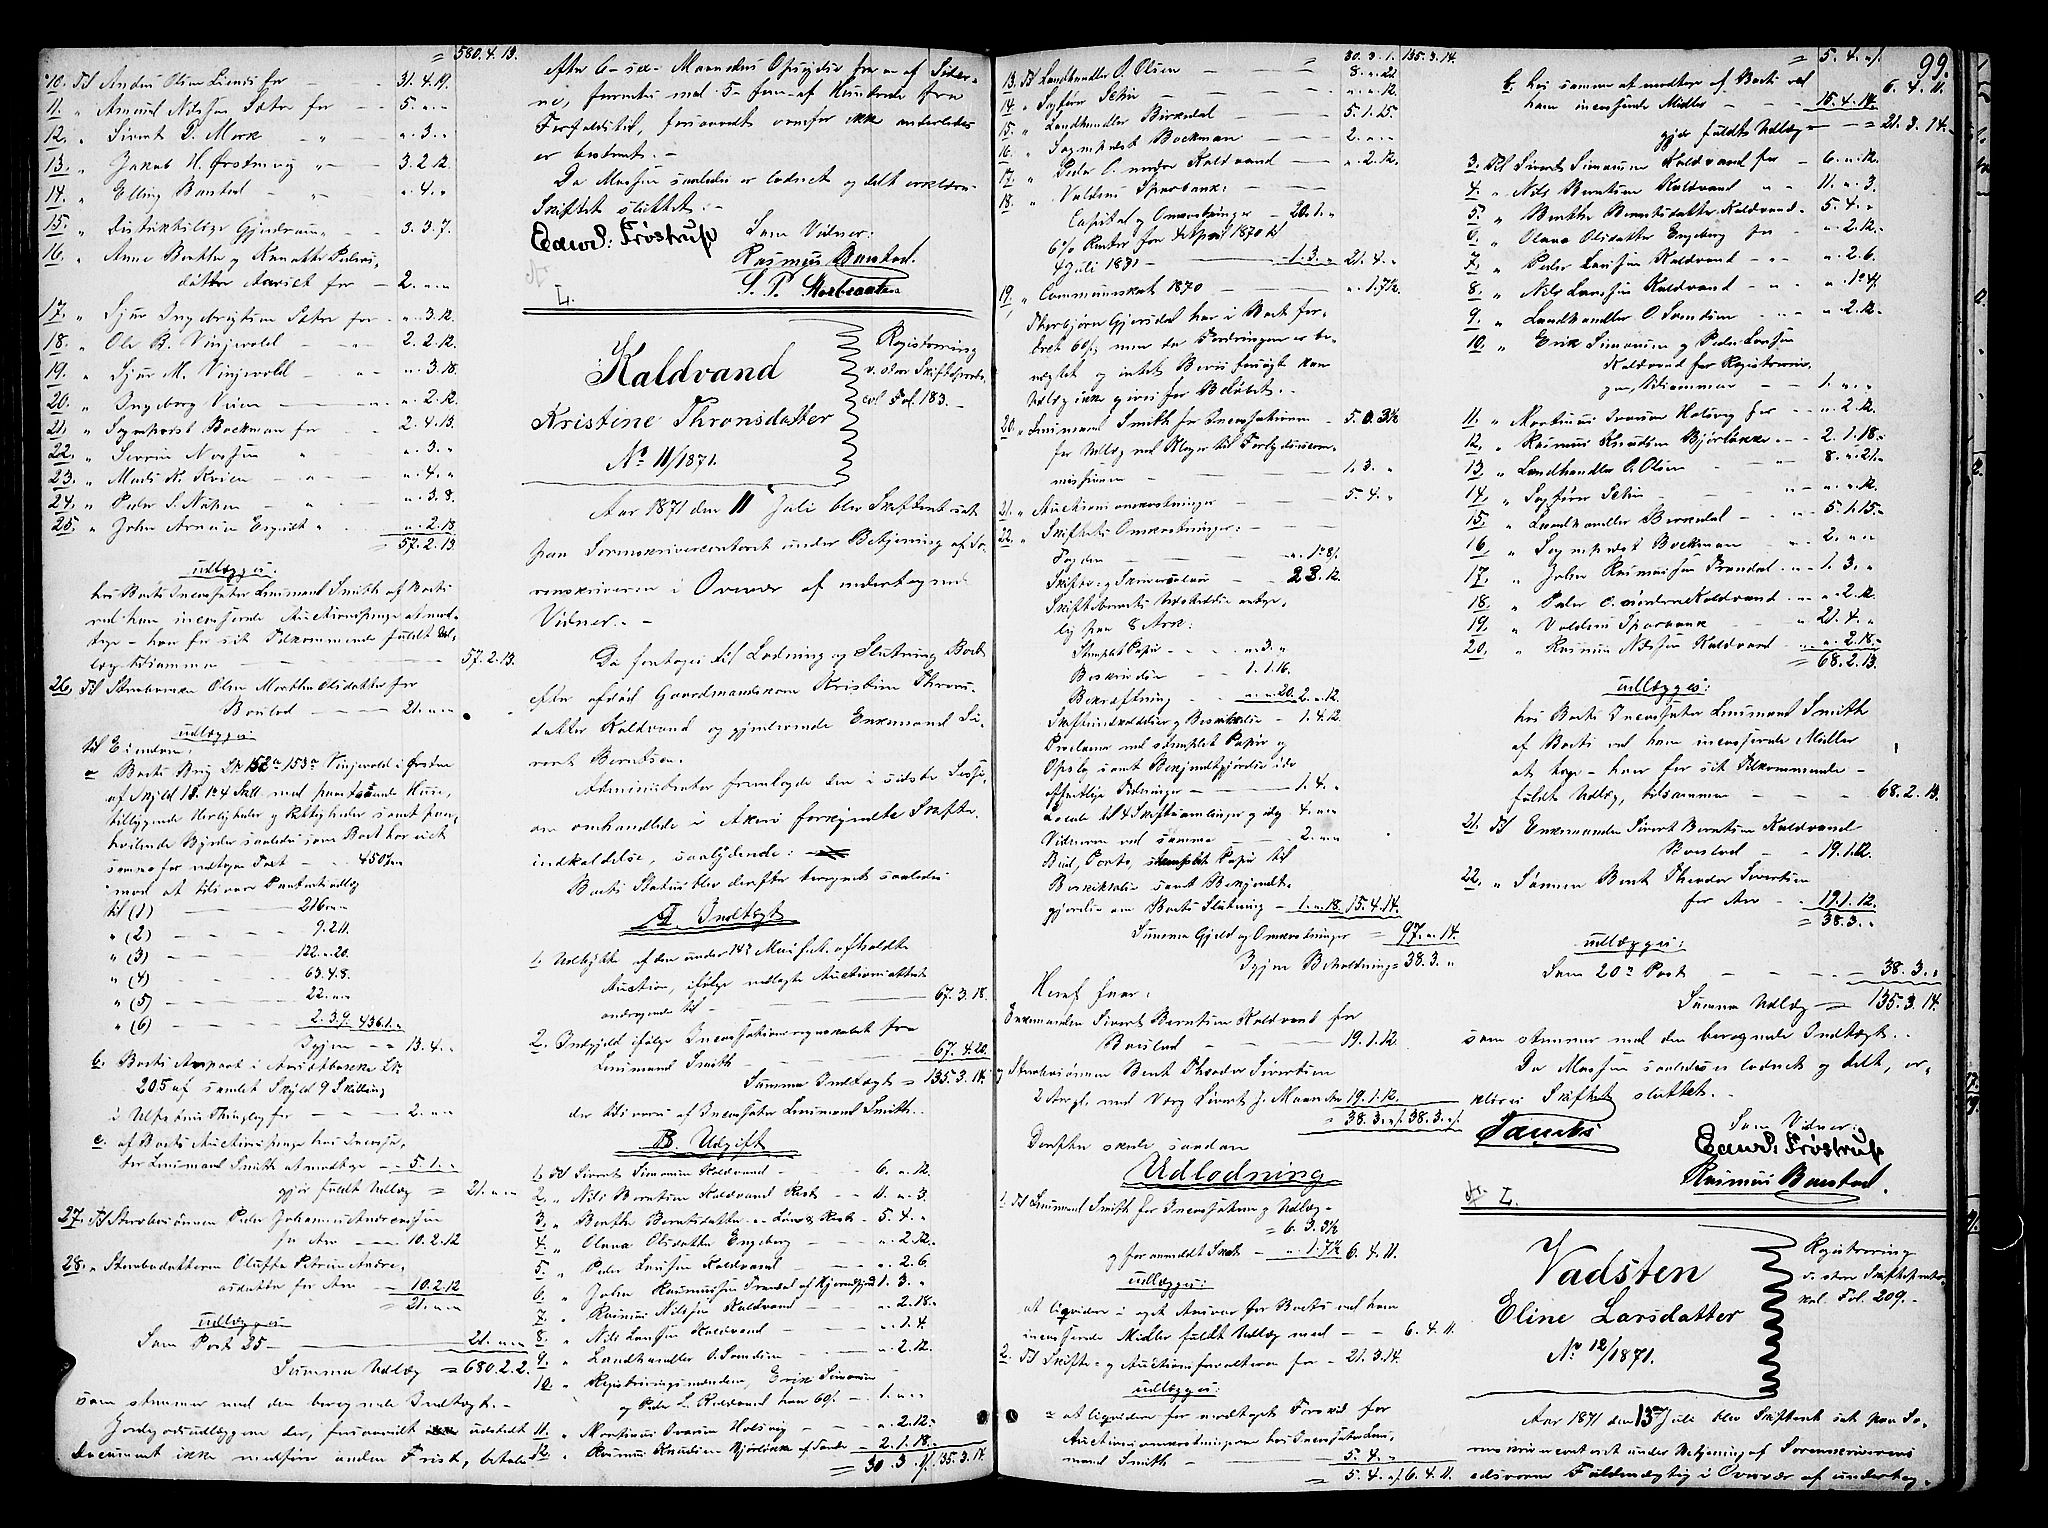 = 580.4.13.
10. Til Anders Olsen Liends for - - 31.4.19.
11. " Amund Nilssen Sætre for - - 5. " "
12. " Sivert P. Mork - " - " .3. "
13. " Jakob H. Ørstenvig " - - 3.2.12.
14. " Elling Bonstad - - " .4. "
15. " Distriktslæge Gjendrum - 3.3.7.
16. " Anne Berthe og Kanutte Peders,
døttre Aarset for - 2. " "
17. " Sjur Ingebrigtsen Sætre for - " .3.12.
18. " Ole B. Vinjevold - " - 2.2.12.
19. " Sjur M. Vinjevold - " - " .3.18.
20. " Ingeborg Veien - " .2.12.
21. " Sognepræst Bockman for - 2.4.13.
22. " Severin Nossen " - " .3. "
23. " Mads K. Kvien - " - " .4. "
24. " Peder S. Nøssen - " - " .3.8.
25. " John Arnesen Engeset " " .2.13.
= 57.2.13.
udlægges:
hos Boets Incassator Lensmand Smith af Boets
ved ham incasserede Auctionspenge at mod-
tage - hver for sit Tilkommende fuldt Ud,
læg tilsammen - - - 57.2.13.
26. Til Stervboenken Olsen Marthe Olsdatter for
Boeslod - - - 21. " "
udlægges
til Eiendom:
a Boets Brug L No 152a 153a Vinjevold i Ørsten
af Skyld 1 S. 1 o 4 Skill. med paastaaende Huse,
tilliggende Herligheder og Rettigheder samt paa,
hvilende Byrder saaledes som Boet har eiet
samme for vedtagen Taxt - - 450 " "
mod at tilsvare Panteudlæg
til (1) - - 216 " "
" (2) - - - 9.2.11.
" (3) - - - 122. " .20.
" (4) - - - 63.4.8.
" (5) - - - 22. " "
" (6) - - - 2.3.9. 436.1. "
Igjen - - 13.4. "
b. Boets Anpart i Aarsetbakke L No
205 af samlet Skyld 9 Skilling
i Ulfstens Thinglag for - - 2. " "
c. af Boets Auctionspenge hos Incassa,
tor Lensmand Smith at modtage - - 5.1. "
gjør fuldt Udlæg = 21. " "
27. Til Stervbosønnen Peder Johannes Andreassen
for Arv - - 10.2.12
28. " Stervbodatteren Oluffa Petrine Andre,
asdatter for Arv - - 10.2.12
= 21. " "
udlægges
Som Post 25 - - - 21. " "
Summa Udlæg = 680.2.2.
som stemmer med den beregnede Indtægt. -
Jordegodsudlæggene der, forsaavidt udstedt
Document ikke medfører anden Frist, betales
efter 6 - sex - Maaneders Opsigelse fra en af Sider-
ne, forrentes med 5 - fem - af Hundrede fra
Forfaldstid, forsaavidt ovenfor ikke anderledes
er bestemt. -
Da Massen saaledes er loddet og delt erklæres
Skiftet sluttet. -
Edvard: Frøstrup Som Vidner:
Rasmus Bonstad.
S. P. Storbraaten
L.
Kaldvand
Kristine Thronsdatter
No 11/1871.
Registrering
v. sten Skifteproto,
col Fol. 183. -
Aar 1871 den 11 Juli blev Skifteret sat
paa Sorenskrivercontoret under Betjening af So-
renskriveren i Overvær af undertegnede
Vidner. -
Da foretoges til Lodning og Slutning Boet
efter afdød Gaardmandskone Kristine Throns,
datter Kaldvand og gjenlevende Enkemand Si-
vert Berntsen.
Administrator fremlagde den i sidste Sessi-
on omhandlede i Akers forkyndte Skifte-
indkaldelse, saalydende:
Boets Status blev derefter beregnet saaledes
A. Indtægt
1. Udbytte af den under 14de Marts f. A. afholdte
Auction, ifølge udlagte Auctionsattest
andragende til - - - 67.3.18.
2. Indgjeld ifølge Incassationsregnskabet fra
Lensmand Smith - - - 67.4.20.
Summa Indtægt = 135.3.14.
der tilsvares af Incassator Lensmand Smith. -
B. Udgift
1. Til Sivert Simonsen Kaldvand - - 6. " .12.
2. " Nils Berntsen Kaldvand Rest - - 11. " .3.
3. " Berthe Berntsdatter - " - Løn & Rest - 5.4. "
4. " Olava Olsdatter Engeberg - - " .2.12.
5. " Peder Larssen Kaldvand - - " .2.6
6. " John Rasmussen Trandal af Hjørendfjord 1.3. "
7. " Rasmus Nilssen Kaldvand - - " .2.18.
8. " Nils Larssen Kaldvand - - " .1.4.
9. " Landhandler O. Svendsen - - " .2.12.
10 " Registreringsmændene, Erik Simonsen
og Peder L. Kaldvand hver 60 s. - 1. " "
11. " Mortinus Ivarsen Holsvig - " .2.12.
12. " Rasmus Knudsen Bjørløkke af Sande - 2.1.18.
= 30.3.1. 135.3.14.
30.3.1. 135.3.14.
13. Til Landhandler O. Olsen - - 8. " .21
14 " Sagfører Stein - - - " . " .12.
15. " Landhandler Birkedal - - 5.1.15.
16. " Sognepræst Bockman - - 2. " "
17. " Peder O. nedre Kaldvand - - " .2.12.
18. " Voldens Sparbank:
Capital og Omkostninger - 20.1. "
6% Renter fra 4 April 1870 til
4 Juli 1871 - - - 1.3. " 21.4. "
19. " Communeskat 1870 - - " .1.7½.
Thorbjørn Gjersdal har i Boet for-
dret 60 s. men da Fordringen er be-
nægtet og intet Beviis fremlagt kan
Udlæg ikke gives for Beløbet. -
20. " Lensmand Smith for Incassationen - 5.0.3½
for Udlæg ved Klager til Forligelsescom-
missionen - - - 1.3. "
21. " Auctionsomkostninger - - 5.4. "
22. " Skiftets Omkostninger:
Fogden - - " .1 o 8 s.
Skifte- og Skriversalair - 2.3.12.
Skiftebrevets Udstedelse antage,
lig paa 8 Ark:
Stemplet Papir - " .3. "
Beskrivelse - - 1.1.16.
Bekræftning - - " . " .20. 2. " .12.
Skifteindkaldelse og Beskikkelse - 1.4.12.
Proclama med stemplet Papir og
Opslag samt Bekjendtgjørelse i de
offentlige Tidninger - - 1.4. "
Locale til 4 Skiftesamlinger og idag 4. " "
Vidnerne ved samme - - 2. " "
Bud, Porto, stemplet Papir til
Beskikkelse samt Bekjendt-
gjørelse om Boets Slutning - 1. " .18. 15.4.14.
Summa Gjeld og Omkostninger = 97. " .14.
Igjen Beholdning = 38.3. "
Heraf faar:
Enkemanden Sivert Berntsen Kaldvand for
Boeslod - - - 19.1.12.
og Stervbosønnen Bent Theodor Sivertsen
2 Aar gl. med Værg Sivert J. Maanes 19.1.12.
= 38.3. " s. 38.3. " s.
Derefter skede saadan
Udlodning
1. Til Lensmand Smith for Incassation og Udlæg -
= 6.3.3½
og for anmeldt Skat - " .1.7½ 6.4.11.
udlægges:
at liqvidere i eget Ansvar for Boets ved ham
incasserede Midler fuldt Udlæg med - - 6.4.11.
2. Til Skifte- og Auctionsforvalteren for - 21.3.14.
udlægges:
a at liqvidere for modtaget Forskud for
Auctionsomkostningerne hos Incassator Lens,
mand Smith - - - 5.4. "
= 5.4. " s. 6.4.11.
99.
= 5.4. " s.
6.4.11.
b. hos samme at modtage af Boets ved
ham incasserede Midler - - 15.4.14.
gjør fuldt Udlæg - = 21.3.14.
3. Til Sivert Simonsen Kaldvand for - 6. " .12.
4. " Nils Berntsen Kaldvand " - 11. " .3.
5. " Berthe Berntsdatter Kaldvand - 5.4. "
6. " Olava Olsdatter Engeberg for - " .2.12.
7. " Peder Larssen Kaldvand - " - " .2.6.
8. " Nils Larssen Kaldvand - " - " .1 o 4 s.
9. " Landhandler O. Svendsen - " " " .2.12.
10. " Erik Simonsen og Peder Larssen
Kaldvand for Registrerin-
gen, tilsammen - - 1. " "
11. " Mortinus Ivarsen Holsvig for - " .2.12.
12. " Rasmus Knudsen Bjørløkke - - 2.1.18.
13. " Landhandler O. Olsen - " - 8. " .21.
14. " Sagfører Stein - " - " . " .12.
15. " Landhandler Birkedal - " - 5.1.15.
16. " Sognepræst Bockman - " - 2. " "
17. " John Rasmussen Trandal - " - 1.3. "
18. " Peder O. nedre Kaldvand - " - " .2.12.
19. " Voldens Sparbank - - " 21.4. "
20. " Rasmus Nilssen Kaldvand - " .2.18.
= 68.2.13.
udlægges:
hos Boets Incassator Lensmand Smith
af Boets ved ham incasserede Midler
at tage - hver for sit Tilkommende -
fuldt Udlæg, tilsammen - - - 68.2.13.
21. Til Enkemanden Sivert Berntsen Kaldvand
Boeslod - - 19.1.12.
22. " Sønnen Bent Theodor Sivertsen
for Arv - - 19.1.12.
= 38.3. "
udlægges:
Som 20de Post - - - 38.3. "
Summa Udlæg = 135.3.14.
som stemmer med den beregnede Indtægt. -
Da Massen saaledes er loddet og delt, er-
klæres Skiftet sluttet. -
Som Vidner:
Edvard: Frøstrup
Rasmus Bonstad.
L.
Vadsten
Eline Larsdatter
No 12/1871.
Registrering
v. sten Skifteproto-
kol. Fol. 209. -
Aar 1871 den 13de Juli blev Skifteret sat paa So-
renskrivercontoret under Betjening af Sorenskriverens
edsvorne Fuldmægtig i Overvær af underteg-